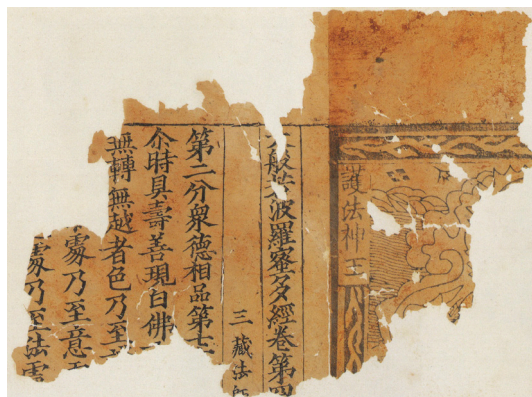 護法神王
般若波羅蜜多經卷第四
三藏法
第二分衆德相品第七
尒時具壽善現白佛
無轉無越者色乃至
處乃至意
處乃至法